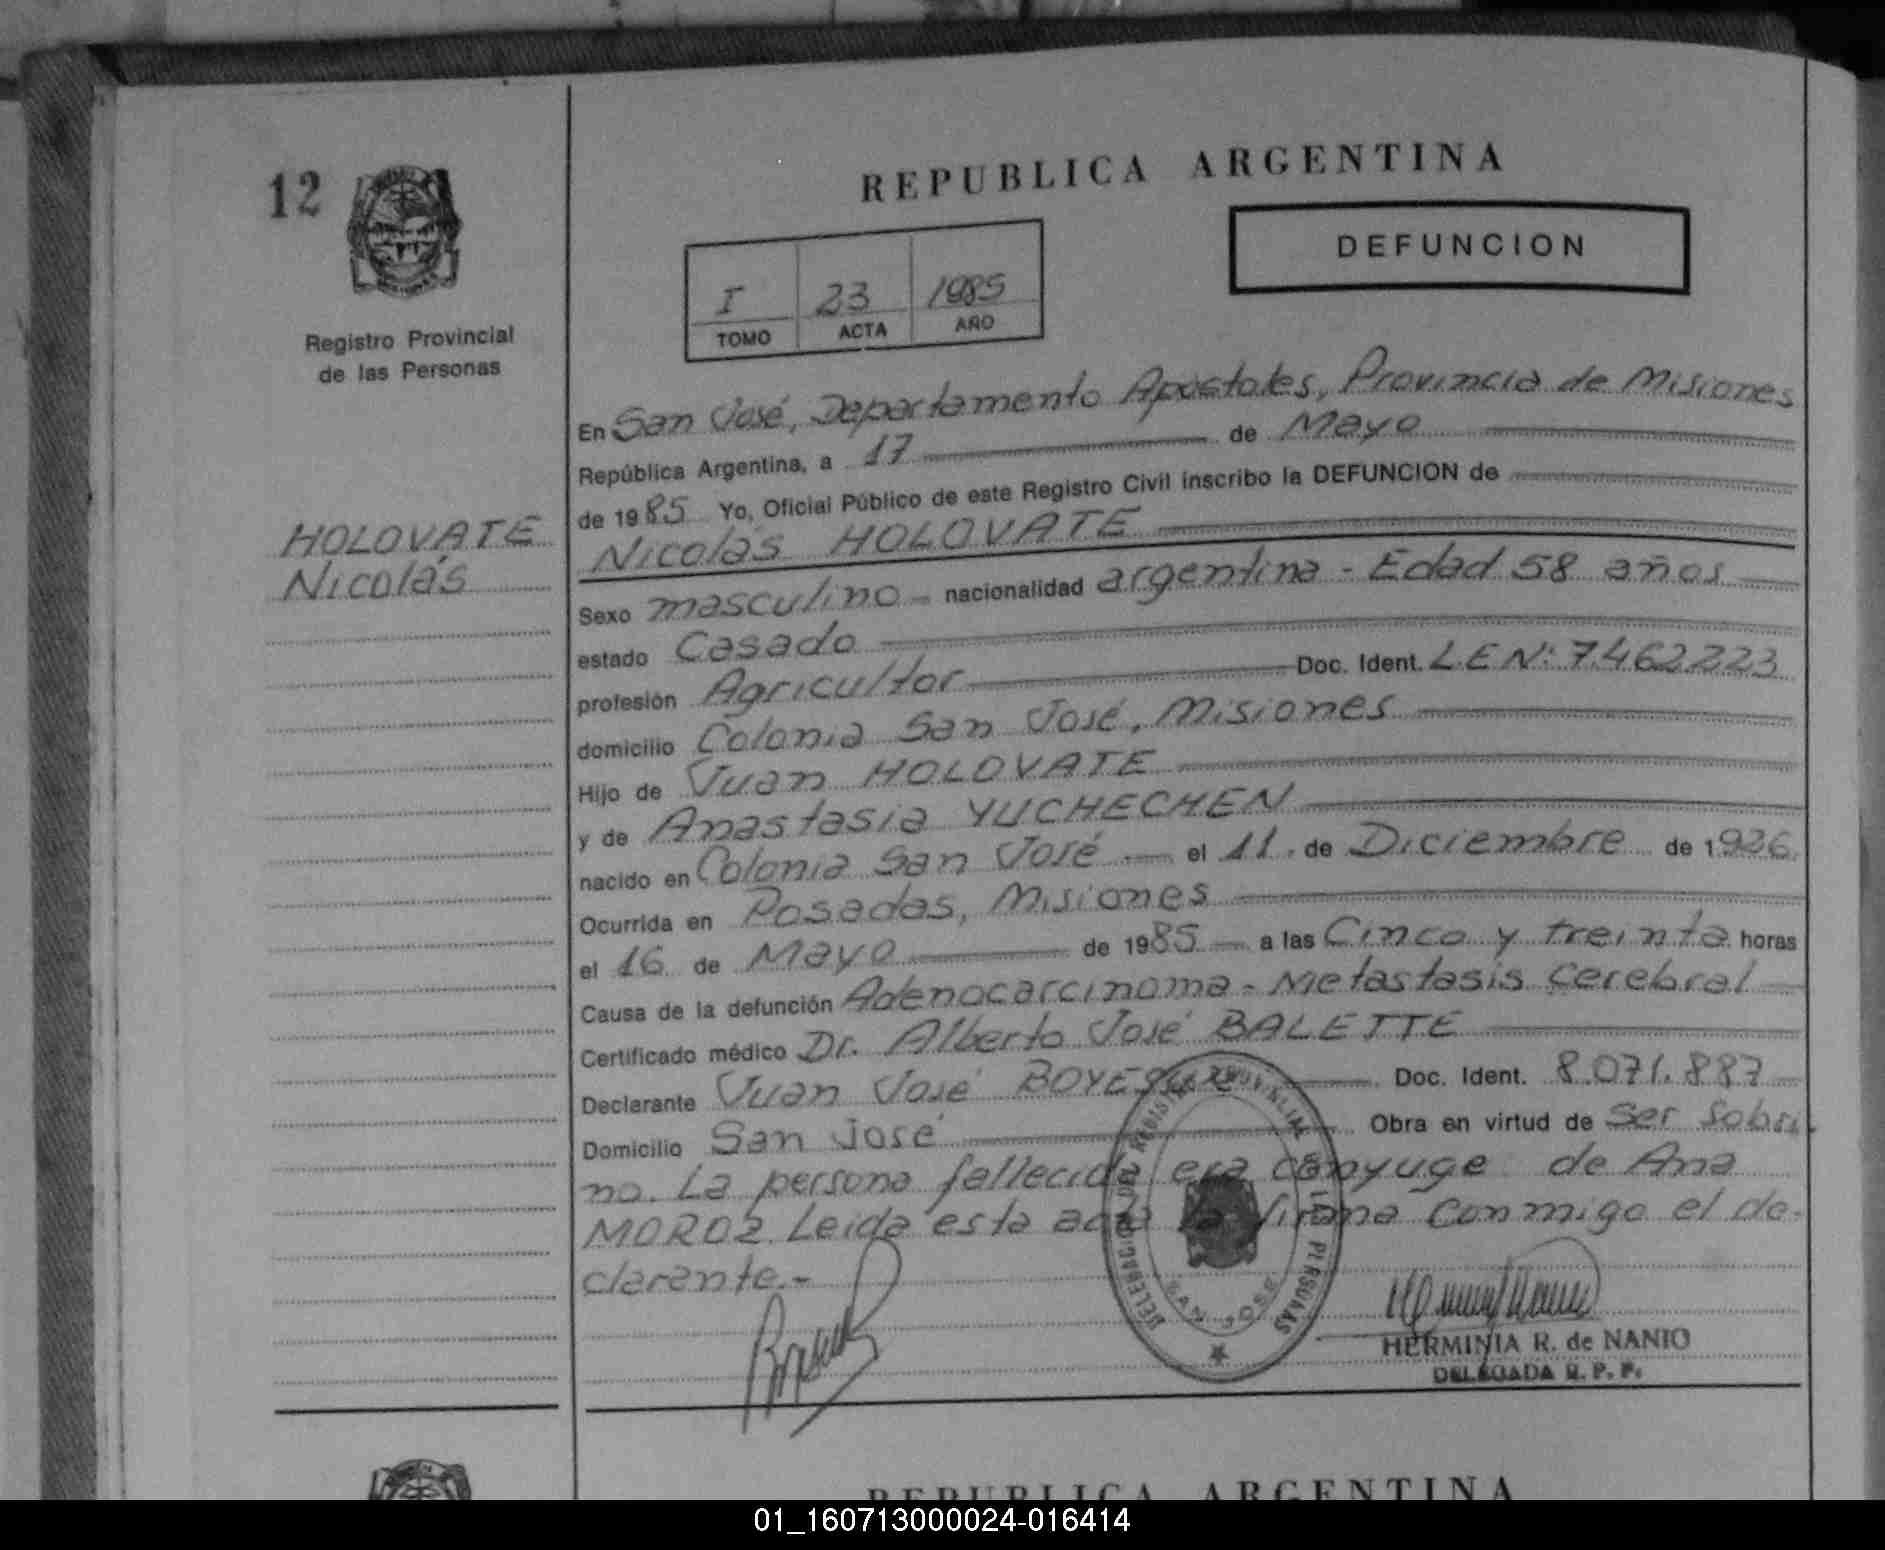 12
REPUBLICA ARGENTINA
DEFUNCION
I 23 1985
TOMO ACTA AÑO
Registro Provincial
de las Personas
HOLOVATE
Nicolás
En San José, Departamento Apóstoles, Provincia de Misiones
República Argentina, a 17 de Mayo
de 1985 Yo, Oficial Público de este Registro Civil inscribo la DEFUNCION de
Nicolás HOLOVATE
Sexo masculino nacionalidad argentina - Edad 58 años
estado Casado
profesión Agricultor Doc. Ident. L.E Nº: 7.462.223
domicilio Colonia San José, Misiones
Hijo de Juan HOLOVATE
y de Anastasia YUCHECHEN
nacido en Colonia San José el 11 de Diciembre de 1926
Ocurrida en Posadas, Misiones
el 16 de Mayo de 1985 a las Cinco y treinta horas
Causa de la defunción Adenocarcinoma - Metastasis cerebral
Certificado médico Dr. Alberto José BALETTE
Declarante Juan José Doc. Ident. 8.071.887
Domicilio San José Obra en virtud de ser sobri-
no. La persona fallecida era cónyuge de Ana
MOROZ. Leida esta acta la firma conmigo el de-
clarante.-
DELEGACION DEL REGISTRO PROVINCIAL DE LAS PERSONAS
SAN JOSE
HERMINIA R. de NANIO
DELEGADA R. P. P.
REPUBLICA ARGENTINA
01_160713000024-016414